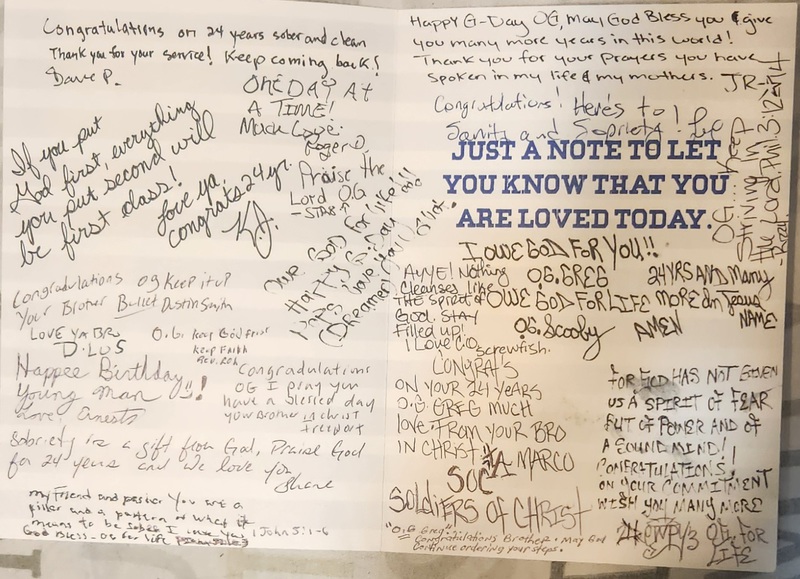 Congratulations on 24 years sober and clean
Thank you for your service! Keep coming back!
Dave P.
One DAY At
A TIME!
Much Love
Roger D.
If you put
God first, everything
you put second will
be first class!
Love ya,
congrats 24 yr.
KJ.
Praise the
Lord OG
- STAR
One God for life!!!
Happy G-Day
(Dreamer)
Congradulations OG Keep it up
Your Brother Bullet Dustin Smith
LOVE YA BRO
D-LUS
O.G. keep God first
keep Faith
Happee Birthday
Young man!
Love: Ernesto
Congradulations
OG I pray you
have a blessed day
your Brother in christ
treeport
Sobriety is a gift from God, Praise God
for 24 years and we love you
Shane
my Friend and pastor You are a
pillar and a pattern of what it
means to be sober I love you
God Bless - OG for life
1 John 5:1-6
Happy G-Day OG, May God Bless you & give
you many more years in this world!
Thank you for your Prayers you have
spoken in my life & my mothers.
JR-
Congratulations! Here's to!
Sanity and Sobriety!
OG... Keep
Shining in
the Lord. Phil 3:12-14
JUST A NOTE TO LET
YOU KNOW THAT YOU
ARE LOVED TODAY.
I OWE GOD FOR YOU!!
OG. GREG
OWE GOD FOR LIFE
OG. Scooby
24 YRS AND Many
MORE in Jesus
NAME
AMEN
AYYE! Nothing
Cleanses like
THE spirit of
God. STAY
Filled up!
I Love G.O.
screwfish.
CONGRATS
ON YOUR 24 YEARS
O.G. GREG MUCH
love FROM YOUR BRO
IN CHRIST MARCO
SOC
SOLDIERS OF CHRIST
"O.G Greg"
Congratulations Brother. May God
Continue ordering your steps.
FOR GOD HAS NOT GIVEN
US A SPIRIT OF FEAR
BUT OF POWER AND OF
A SOUND MIND!
CONGRATULATIONS,
ON YOUR COMMITMENT
WISH YOU MANY MORE
OG. FOR
LIFE